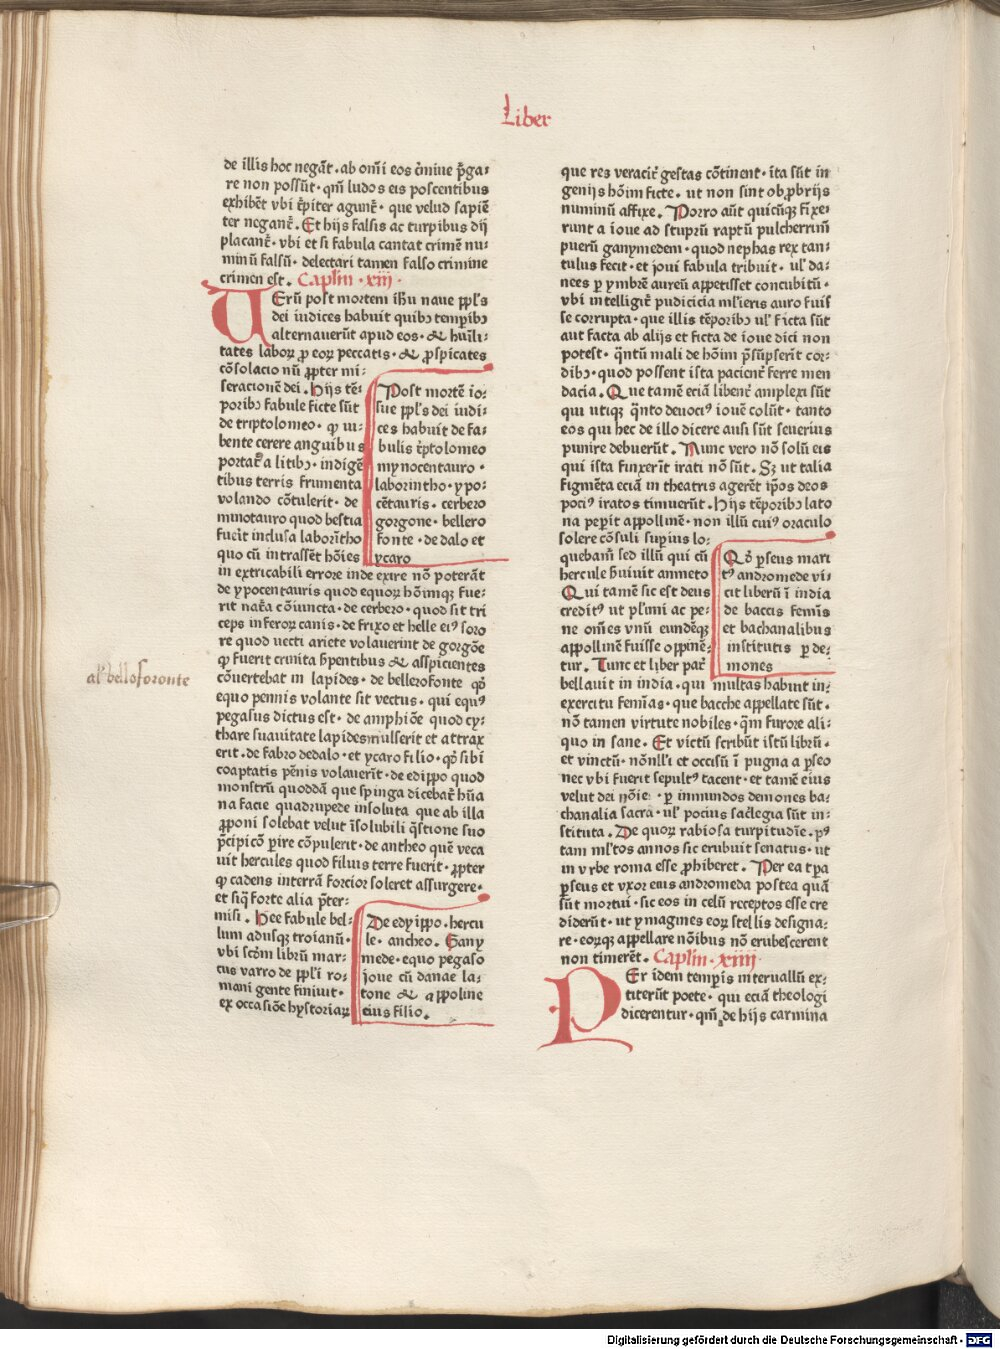 Liber
de illis hoc negāt · ab om̄i eos c̓mine p̄ga⸗
re non possūt · qm̄ ludos eis poscentibus
exhibēt vbi t̓piter agunt̄ · que velud sapiē
ter negant̄ . Et hijs falsis ac turpibus dij
placant̄ · vbi et si fabula cantat crimē nu⸗
minū falsū · delectari tamen falso crimine
crimen est . Caplm̄ · xiij ·
UErū post mortem ih̄u naue ppl̓s
dei iudices habuit quibꝫ temp̲ibꝫ
alternauerūt apud eos · & huīli⸗
tates laboꝝ ꝓ eoꝝ peccatis · & ꝓspicates
cōsolacio nū ꝓpter mi⸗
seracionē dei . Hijs tē⸗
poribꝫ fabule ficte sūt
de triptolomeo · ꝙ iu⸗
bente cerere anguibus
portat̄ᵒ a litibꝫ · indigē
tibus terris frumenta
volando cōtulerit · de
minotauro quod bestia
fuerit inclusa laborītho
quo cū intrassēt hōies
Post mortē io⸗
sue ppl̓s dei iudi⸗
ces habuit de fa⸗
bulis t̓ptolomeo
mynocentauro ·
laborintho · ypo⸗
cētauris · cerbero
gorgone · bellero
fonte · de dalo et
ycaro
in extricabili errore inde exire nō poterāt
de ypocentauris quod equoꝝ hōimqꝫ fue⸗
rit nat̄a cōiuncta · de cerbero · quod sit tri
ceps inferoꝝ canis · de frixo et helle ei⁹ soro
re quod uecti ariete volauerint de gorgōe
ꝙ fuerit crinita h̓pentibus & asspicientes
cōuertebat in lapides · de bellerofonte qd̓
equo pennis volante sit vectus · qui equ⁹
pegasus dictus est · de amphiōe quod cy⸗
thare suauitate lapides mulserit et attrax
erit · de fabro dedalo · et ycaro filio · qd̓ sibi
coaptatis pēnis volauerīt · de edippo quod
monstrū quoddā que spinga dicebat̄ hūa
na facie quadrupede insoluta que ab illa
ꝓponi solebat velut īsolubili q̄stione suo
p̄cipicō p̲ire cōpulerit · de antheo quē veca
uit hercules quod filius terre fuerit · ꝓpter
ꝙ cadens interrā forcior soleret assurgere ·
et siq̄ forte alia p̄ter⸗
misi . Hee fabule bel⸗
lum adusqꝫ troianū ·
vbi scd̄m librū mar⸗
cus varro de ppl̓i ro⸗
mani gente finiuit ·
ex occasiōe hystoriaꝝ
De edyippo · hercu
le · ancheo . Gany
mede · equo pegaso
ioue cū danae la⸗
tone & appoline
eius filio .
al̓ belloforonte
que res veracit̓ gestas cōtinent · ita sūt in
genijs hōim ficte · ut non sint obprobrijs
numinū affixe . Porro aūt quicūqꝫ fixe⸗
runt a ioue ad stuprū raptū pulcherrimū
puerū ganymedem · quod nephas rex tan⸗
tulus fecit · et ioui fabula tribuit · ul̓ da⸗
nees p̲ ymbrē aureū appetisset concubitū ·
vbi intelligit̄ pudicicia ml̓ieris auro fuis
se corrupta · que illis tēporibꝫ ul̓ ficta sūt
aut facta ab alijs et ficta de ioue dici non
potest · q̄ntū mali de hōim p̄sūpserit cor⸗
dibꝫ · quod possent ista pacient̓ ferre men
dacia . Que tamē eciā libent̓ amplexi sūt
qui utiqꝫ q̄nto deuoci⁹ iouē colūt · tanto
eos qui hec de illo dicere ausi sūt seuerius
punire debuerūt . Nunc vero nō solū eis
qui ista finxerīt irati nō sūt . Sꝫ ut talia
figmēta eciā in theatris agerēt ip̄os deos
poci⁹ iratos timuerūt . Hijs tēporibꝫ lato
na pep̲it appollinē · non illū cui⁹ oraculo
solere cōsuli sup̲ius lo⸗
quebam̄ sed illū qui cū
hercule h̓uiuit anmeto
Qui tamē sic est deus
credit⁹ ut pl̓imi ac pe⸗
ne om̄es vnū eundēqꝫ
appollinē fuisse oppinē⸗
tur . Tunc et liber pat̄
Qd̓ p̲seus mari
t⁹ andromede vi⸗
cit liberū ī india
de baccis femīs
et bachanalibus
institutis p̲ de⸗
mones
bellauit in india · qui multas habuit in⸗
exercitu femīas · que bacche appellate sūt ·
nō tamen virtute nobiles · q̄m furore ali⸗
quo in sane . Et victū scribūt istū librū ·
et vinctū · nōnll̓i et occisū ī pugna a p̲seo
nec vbi fuerit sepult⁹ tacent · et tamē eius
velut dei nōie · p̲ inmundos demones ba⸗
chanalia sacra · ul̓ pocius sac̓legia sūt in⸗
stituta . De quoꝝ rabiosa turpitudīe · p⁹
tam ml̓tos annos sic erubuit senatus · ut
in vrbe roma esse ꝓhiberet . Per ea tp̄a
p̲seus et vxor eius andromeda postea quā
sūt mortui · sic eos in celū receptos esse cre
diderūt · ut ymagines eoꝝ stellis designa⸗
re · eorūqꝫ appellare nōibus nō erubescerent
non timerēt . Caplm̄ · xiiij ·
PEr idem temp̲is interuallū ex⸗
titerūt poete · qui eciā theologi
dicerentur · qm̄ de hijs carmina
Digitalisierung gefördert durch die Deutsche Forschungsgemeinschaft - DFG